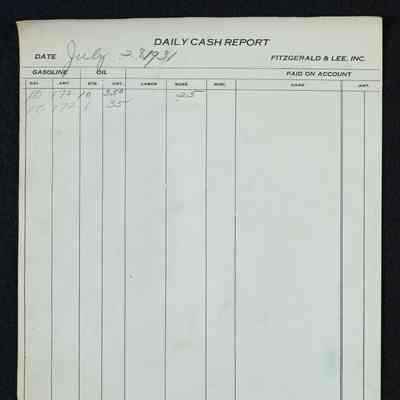 DAILY CASH REPORT
DATE July 23 1931 FITZGERALD & LEE, INC.
GASOLINE OIL PAID ON ACCOUNT
GAL. AMT. QTS. AMT. LABOR MDSE. MISC. NAME AMT.
10 177 10 350 25
10 177 1 35